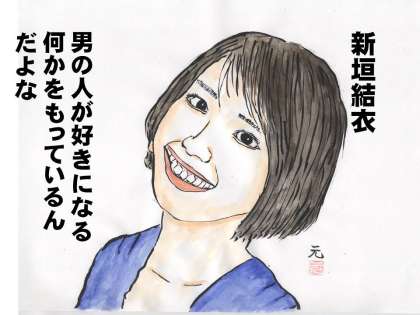 新垣結衣
男の人が好きになる
何かをもっているん
だよな
元